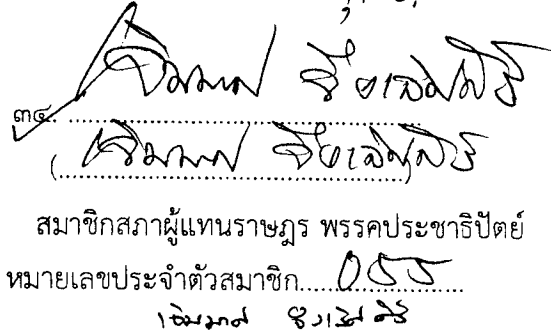 ๓๔. เจิมมาศ จึงเลิศศิริ
(เจิมมาศ จึงเลิศศิริ)
สมาชิกสภาผู้แทนราษฎร พรรคประชาธิปัตย์
หมายเลขประจำตัวสมาชิก.....055.....
เจิมมาศ จึงเลิศศิริ